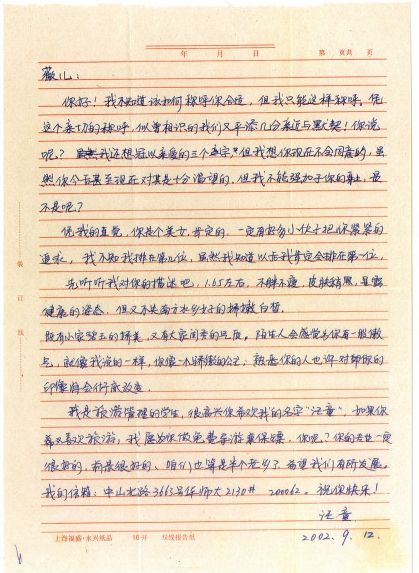 年 月 日 第 页共 页
薇儿：
你好！我不知道该如何称呼你合适，但我只能这样称呼。凭
这个亲切的称呼，似曾相识的我们又平添几分亲近与默契！你说
呢？我还想冠以亲爱的三个字，但我想你现在不会同意的，虽
然你今后甚至现在对其是十分渴望的，但我不能强加于你的身上，是
不是呢？
凭我的直觉，你是个美女，肯定的，一定有好多小伙子把你紧紧的
追求，我不知我排在第几位，虽然我知道以后我肯定会排在第一位，
先听听我对你的描述吧，1.65左右，不胖不瘦，皮肤稍黑，呈露
健康的姿态，但又不失南方水乡女子的娇嫩白皙。
既有小家碧玉的娇美，又有大家闺秀的品质。陌生人会感觉到你有一股傲
气，就像我说的一样，你像一个骄傲的公主；熟悉你的人也许对那般的
印象将会彻底改变。
我是旅游管理的学生，很高兴你喜欢我的名字“汪童”，如果你
喜欢旅游，我愿为你做免费导游兼保镖，你呢？你的专业一定
很好的，前景很好的，咱们也算是半个老乡？希望我们有所发展。
我的信箱：中山北路3663号华师大2130# 200062。祝你快乐！
汪童
2002.9.12.
装
订
线
上海福盛·永兴纸品 16开 双线报告纸